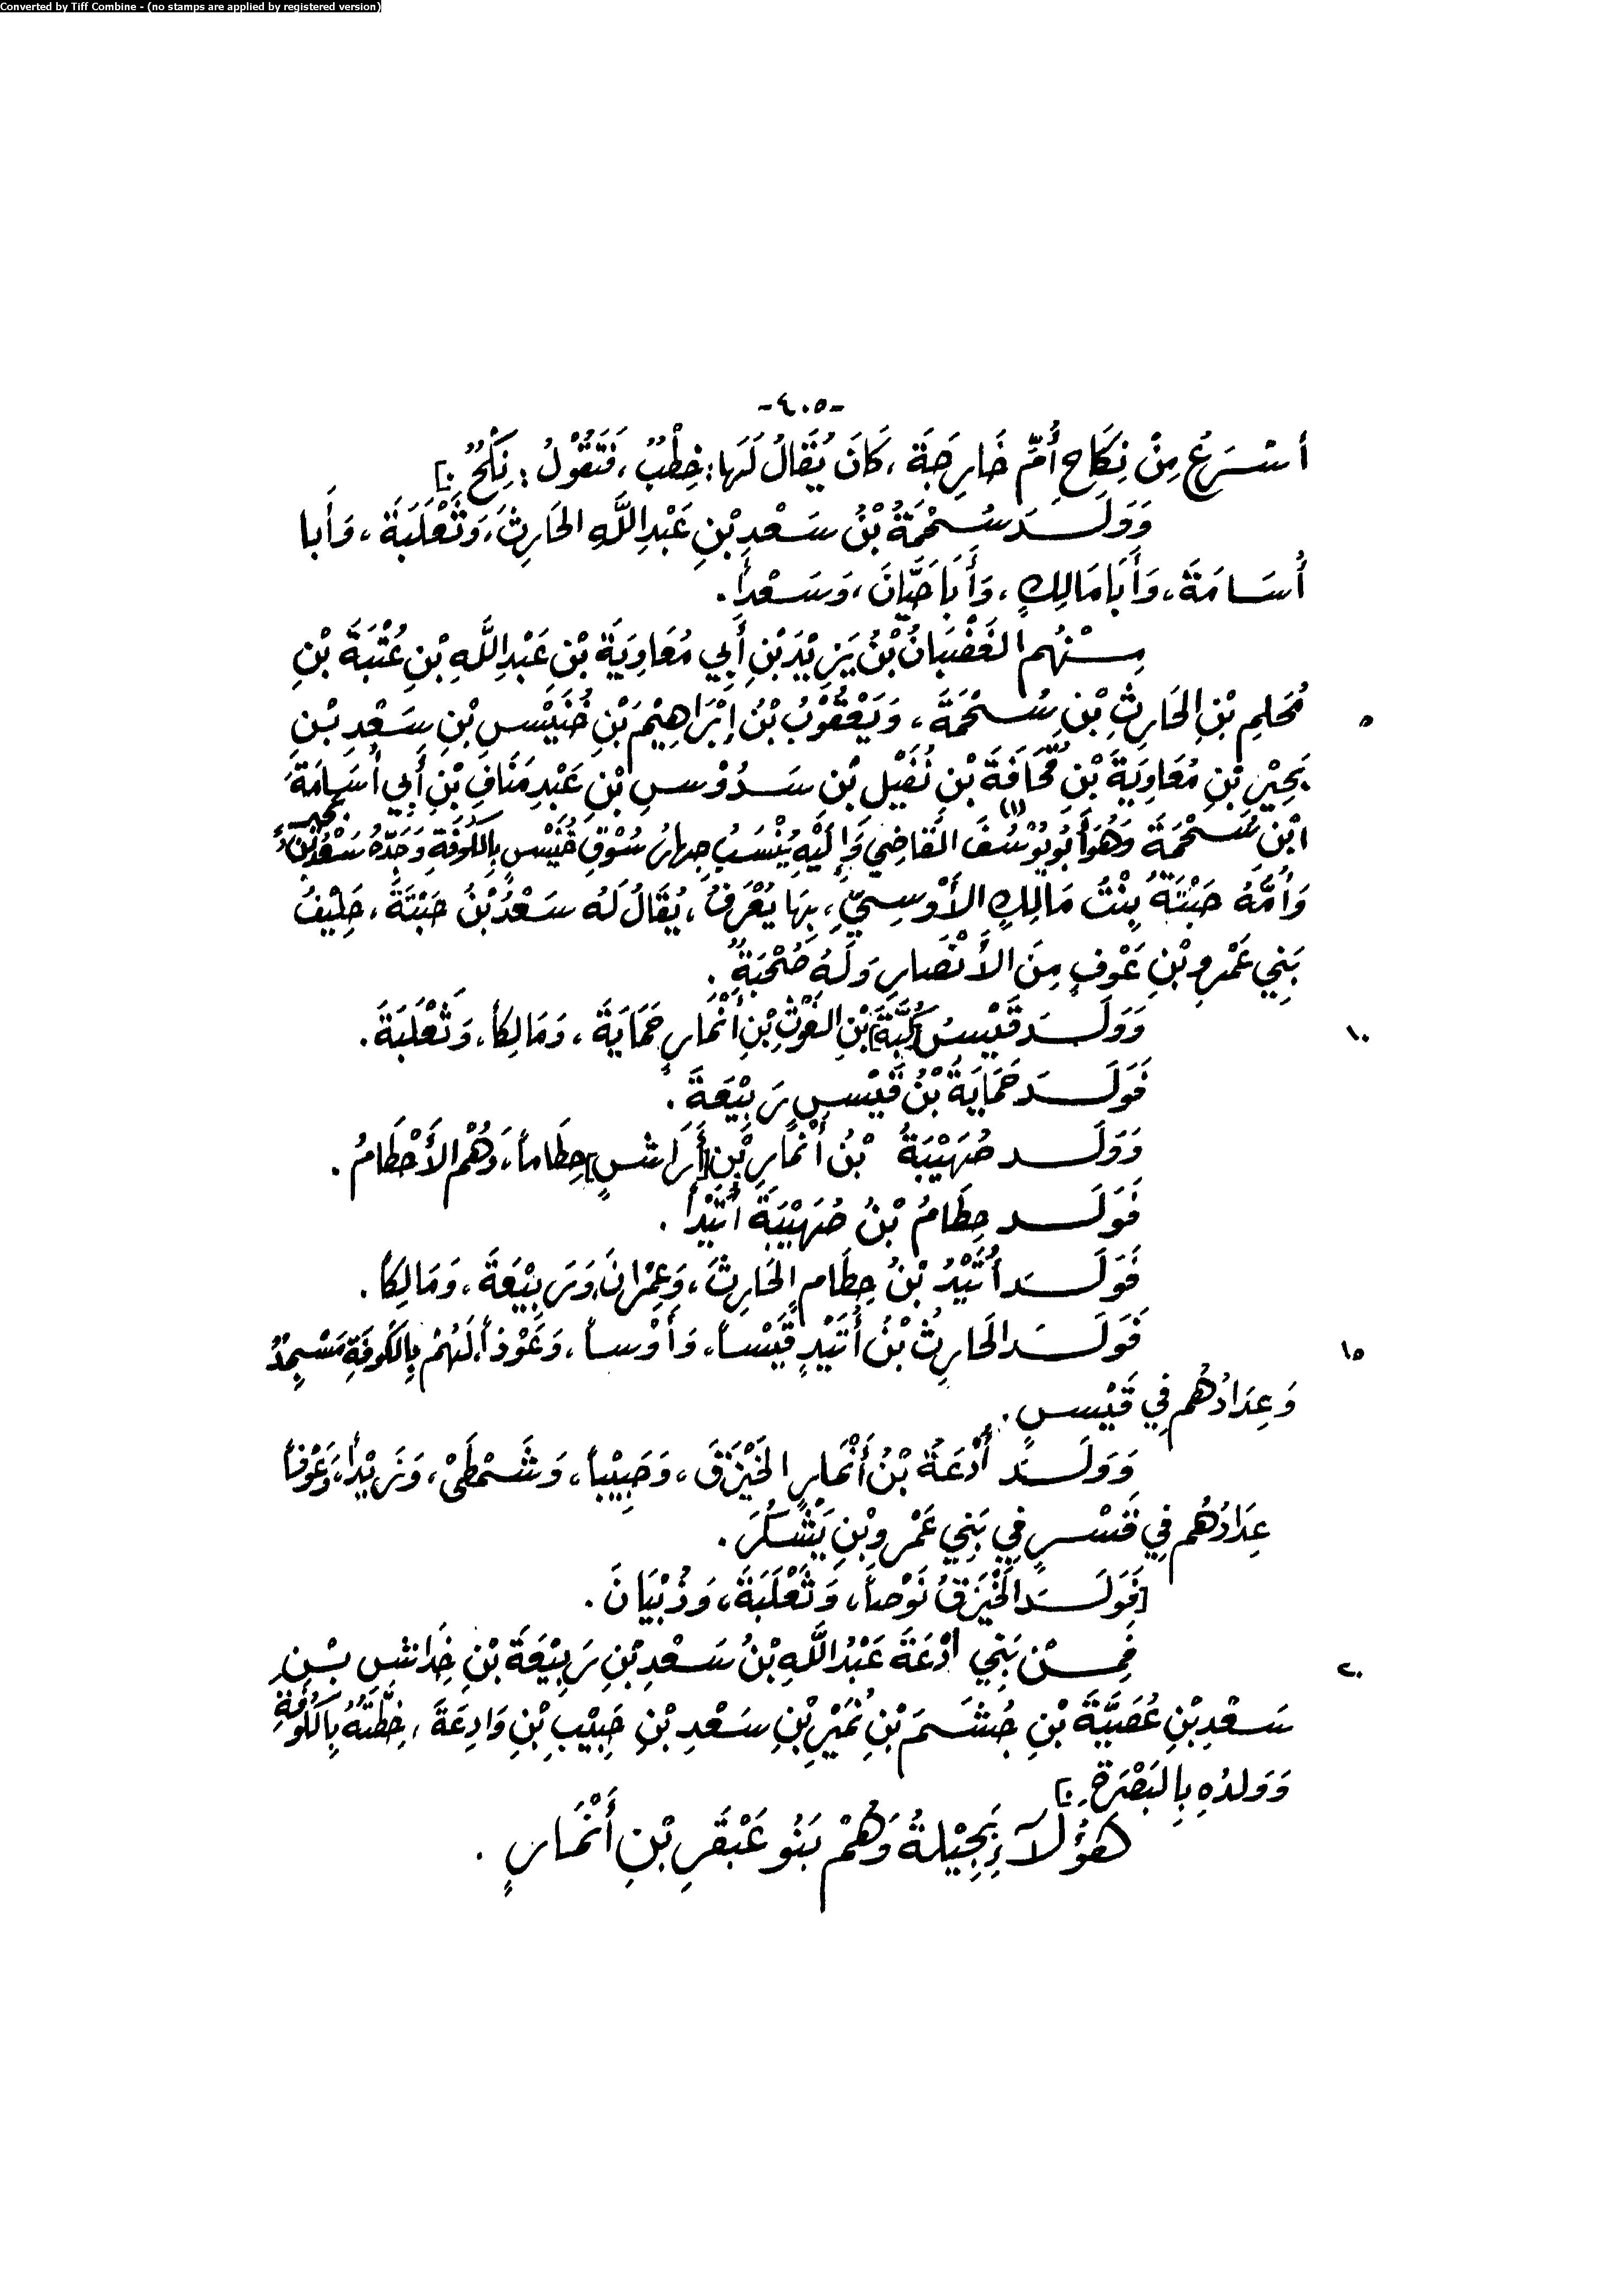 Converted by Tiff Combine - (no stamps are applied by registered version)
-٤٠٥-
أَسْرَعُ مِنْ نِكَاحِ أُمِّ خَارِجَةَ ، كَانَ يُقَالُ لَهَا : خِطْبٌ ، فَتَقُوْلُ : نِكْحٌ .]
وَوَلَــدَ سُحْمَةُ بْنُ سَعْدِ بْنِ عَبْدِ اللَّهِ الحَارِثَ، وَثَعْلَبَةَ ، وَأَبا
أُسَامَةَ، وَأَبَا مَالِكٍ ، وَأَبَا حَيَّانَ ، وَسَعْداً .
مِـنْهُم الغَضْبَانُ بْنُ يَزِيْدَ بْنِ أَبِي مُعَاوِيَةَ بْنِ عَبْدِ اللَّهِ بْنِ عُتْبَةَ بْنِ
مُحَلِمِ بْنِ الحَارِثِ بْنِ سُحْمَةَ ، وَيَعْقُوْبُ بْنُ إِبْرَاهِيْمَ بْنِ خُنَيْسِ بْنِ سَعْدِ بْـنِ ٥
بَحِيْرِ بْنِ مُعَاوِيَةَ بْنِ قُحَافَةَ بْنِ نُفَيْلِ بْنِ سَدُوْسِ بْنِ عَبْدِ مَنَافِ بْنِ أَبِي أُسَامَةَ
ابْنِ سُحْمَةَ وَهُوَ أَبُو يُوْسُفَ القَاضِي(١) وَإِلَيْهِ يُنْسَبُ جهار سُوْقِ خُنَيْسٍ بِالكُوفَةِ وَجَدُّهُ سَعْدُ بْنُ بحير
وَأُمُّهُ حَبْتَةُ بِنْتُ مَالِكٍ الأَوْسِيِّ ، بِهَا يُعْرَفُ ، يُقَالُ لَهُ سَعْدُ بْنُ حَبْتَةَ ، حَلِيْفُ
بَنِي عَمْرِو بْنِ عَوْفٍ مِنَ الأَنْصَارِ وَلَهُ صُحْبَةٌ .
وَوَلَــدَ قَيْسُ [كُبَّةَ] بْنِ الغَوْثِ بْنِ أَنْمَارٍ حَمَايَةَ ، وَمَالِكاً، وَثَعْلَبَةَ . ١٠
فَوَلَــدَ حَمَايَةُ بْنُ قَيْسٍ رَبِيْعَةَ .
وَوَلَــد صُهَيْبَةُ بْنُ أَنْمَارِ بْنِ [أَرَاشٍ] حِطَاماً، وَهُمْ الأَحْطَامُ .
فَوَلَــد حِطَامُ بْنُ صُهَيْبَةَ أُتَيْداً .
فَوَلَــدَ أُتَيْدُ بْنُ حِطَامٍ الحَارِثَ ، وَعِمْرَانَ، وَرَبِيْعَةَ ، وَمَالِكاً .
فَوَلَــدَ الحَارِثُ بْنُ أُتَيْدٍ قَيْساً، وَأَوْساً ، وَعَوْذاً، لَهُمْ بِالكُوفَةِ مَسْجِدٌ ١٥
وَعِدَادُهُم فِي قَيْسٍ .
وَوَلَــدَ أَدْعَةُ بْنُ أَنْمَارٍ الخَيْزَقَ ، وَحَبِيْباً، وَشَمْطَىْ ، وَزَيْداً، وَعَوْفاً
عِدَادُهُم فِي قَسْرٍ فِي بَنِي عَمْرِو بْنِ يَشْكُرَ .
[فَوَلَــدَ الخَيْزَقُ نَوْصاً، وَثَعْلَبَةَ، وَذُبْيَانَ .
فَمِـنْ بَنِي أَدْعَةَ عَبْدُ اللَّهِ بْنُ سَعْدِ بْنِ رَبِيْعَةَ بْنِ خِدَاشِ بْـنِ ٢٠
سَعْدِ بْنِ عُصَيَّةَ بْنِ جُشَمَ بْنِ نُمَيْرِ بْنِ سَعْدِ بْنِ حَبِيْبِ بْنِ وَادِعَةَ ، خِطَّتُهُ بِالكُوفَةِ
وَوَلدُهِ بِالبَصْرَةِ .]
هَؤُلَآءِ بَجِيْلةُ وَهُمْ بَنُو عَبْقَرِ بْنِ أَنْمَارٍ .